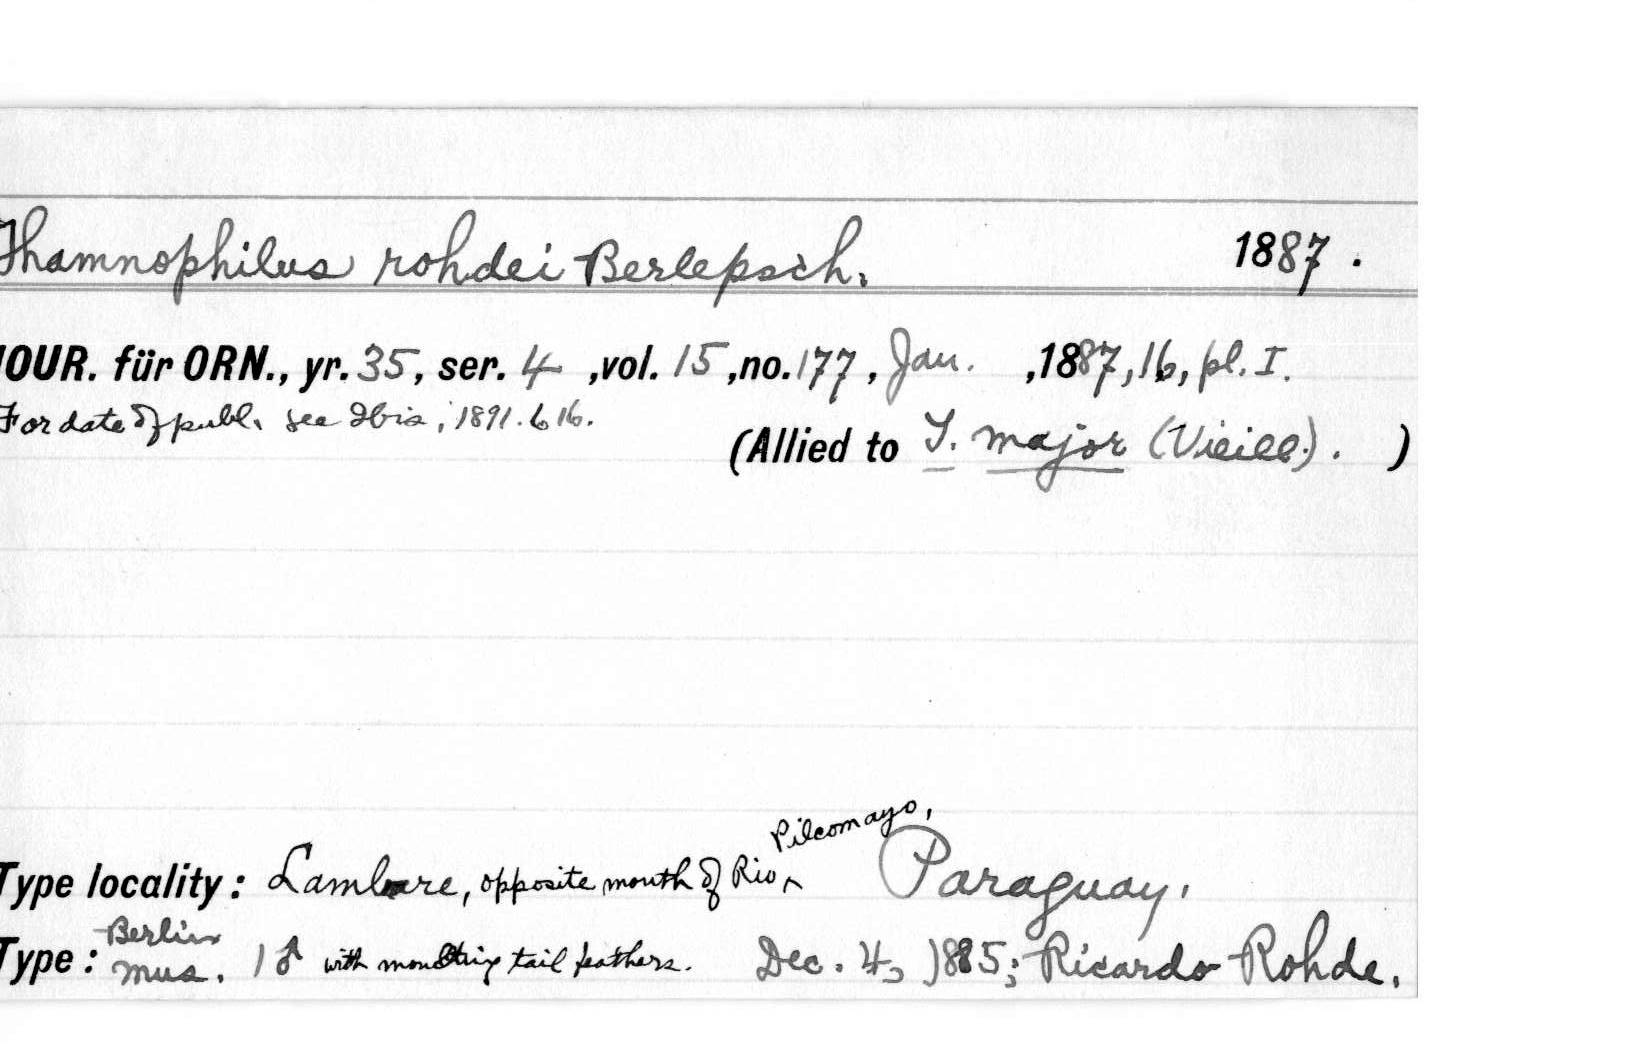 Thamnophilus rohdei Berlepsch. 1887.
JOUR. für ORN., yr. 35, ser. 4, vol. 15, no. 177, Jan., 1887, 16, pl. I.
For date of publ. see Ibis, 1891. 616.
(Allied to T. major (Vieill.). )
Type locality: Lambare, opposite mouth of Rio ^ Pilcomayo, Paraguay.
Type: Berlin mus. 1 ♂ with moulting tail feathers. Dec. 4, 1885; Ricardo Rohde.